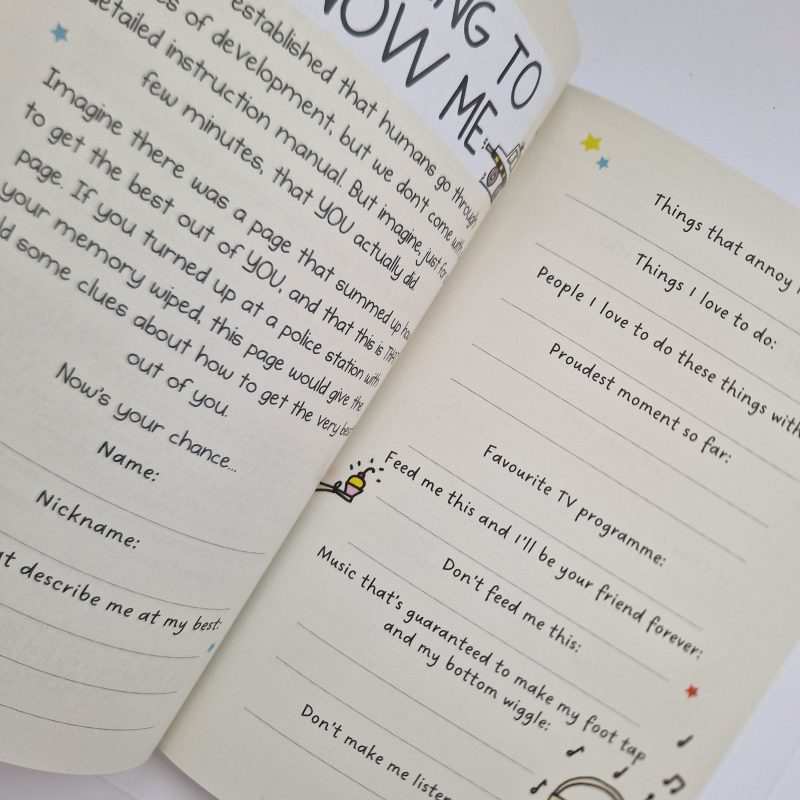 NG TO
NOW ME
established that humans go through
es of development, but we don't come with
detailed instruction manual. But imagine, just for
few minutes, that YOU actually did.
Imagine there was a page that summed up how
to get the best out of YOU, and that this is THAT
page. If you turned up at a police station with
your memory wiped, this page would give the
some clues about how to get the very best
out of you.
Now's your chance...
Name:
Nickname:
describe me at my best:
Things that annoy
Things I love to do:
People I love to do these things with
Proudest moment so far:
Favourite TV programme:
Feed me this and I'll be your friend forever:
Don't feed me this:
Music that's guaranteed to make my foot tap
and my bottom wiggle:
Don't make me listen